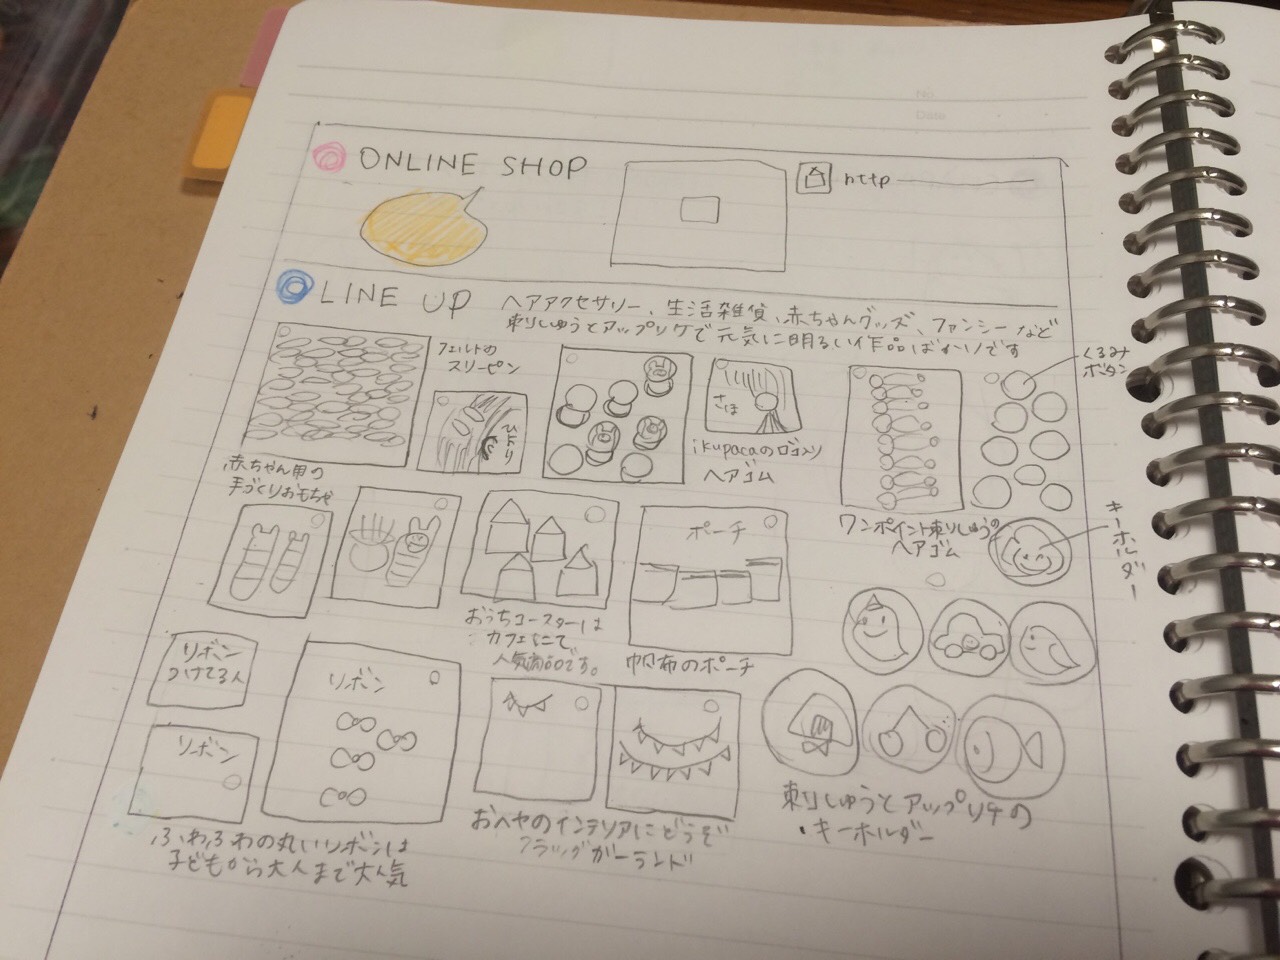 No.
Date
ONLINE SHOP
http
LINE UP
ヘアアクセサリー、生活雑貨、赤ちゃんグッズ、ファンシーなど
刺しゅうとアップリケで元気に明るい作品ばかりです
フェルトの
スリーピン
ひより
さほ
ikupacaのロゴ入り
ヘアゴム
くるみ
ボタン
ワンポイント刺しゅうの
ヘアゴム
キーホルダー
赤ちゃん用の
手づくりおもちゃ
おうちコースターは
カフェにて
人気商品です。
ポーチ
帆布のポーチ
リボン
つけてる人
リボン
リボン
ふわふわの丸いリボンは
子どもから大人まで大人気
おヘヤのインテリアにどうぞ
フラッグガーランド
刺しゅうとアップリケの
・キーホルダー